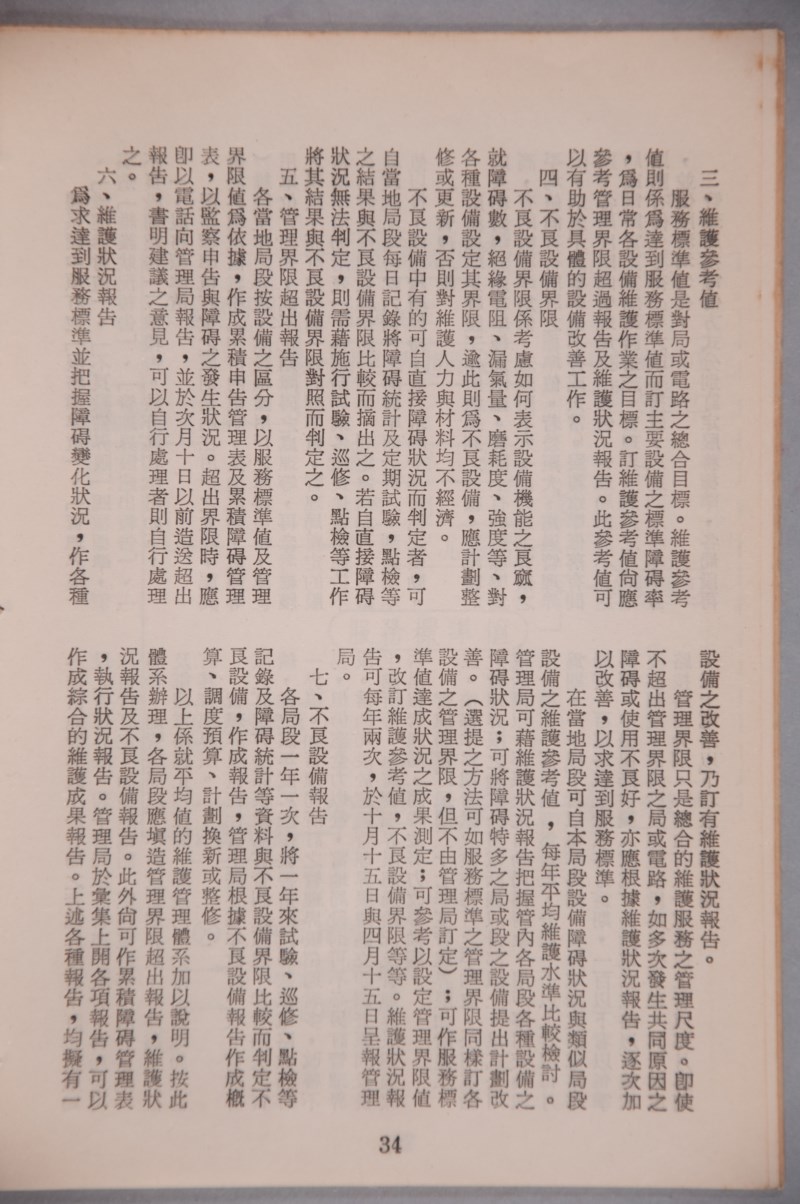 三、維護參考值
服務標準值是對局或電路之總合目標。維護參考
值則係爲達到服務標準值而訂主要設備之標準障碍率
，爲日常各設備維護作業之目標。訂維護參考值尙應
參考管理界限超過報告及維護狀況報告。此參考值可
以有助於具體的設備改善工作。
四、不良設備界限
不良設備界限係考慮如何表示設備機能之良窳，
就障碍數，絕緣電阻、漏氣量、磨耗度、強度等、對
各種設備設定其界限，逾此則爲不良設備，應計劃整
修或更新，否則對維護人力與材料均不經濟。
不良設備中有的可自直接障碍狀況而判定者，可
自當地局段每日記錄將障碍統計及定期試驗，點檢等
之結果與不良設備界限比較而摘出之。若自直接障碍
狀況無法判定，則需藉施行試驗、巡修、點檢等工作
將其結果與不良設備界限對照而判定之。
五、管理界限超出報告
各當地局段按設備之區分，以服務標準值及管理
界限值爲依據，作成累積申告管理表及累積障碍管理
表，以監察申告與障碍之發生狀況。超出界限時，應
卽以電話向管理局報告，並於次月十日以前造送超出
報告，書明建議之意見，可以自行處理者則自行處理
之。
六、維護狀況報告
爲求達到服務標準並把握障碍變化狀況，作各種
設備之改善，乃訂有維護狀況報告。
管理界限只是總合的維護服務之管理尺度。卽使
不超出管理界限之局或電路，如多次發生共同原因之
障碍或使用不良好，亦應根據維護狀況報告，逐次加
以改善，以求達到服務標準。
在當地局段可自本局段設備障碍狀況與類似局段
設備之維護參考值，每年平均維護水準比較檢討。
管理局可藉維護狀況報告把握管內各局段各種設備之
障碍狀況；可將障碍特多之局或段之設備提出計劃改
善。（選提之方法可如服務標準之管理界限同樣訂各
設備之管理界限，但不由管理局訂定）；可作服務標
準值達成狀況之成果測定；可參考以設定管理界限值
，改訂維護參考值，不良設備界限等等。維護狀況報
告可每年兩次，於十月十五日與四月十五日呈報管理
局。
七、不良設備報告
各局段一年一次，將一年來試驗、巡修、點檢等
記錄及障碍統計等資料與不良設備界限比較而判定不
良設備，作成報告，管理局根據不良設備報告作成槪
算、調度預算、計劃換新或整修。
以上係就平均值的維護管理體系加以說明。按此
體系辦理，各局段應塡造管理界限超出報告，維護狀
況報告及不良設備報告。此外尙可作累積障碍管理表
，執行狀況報告。管理局於彙集上開各項報告，可以
作成綜合的維護成果報告。上述各種報告，均擬有一
34